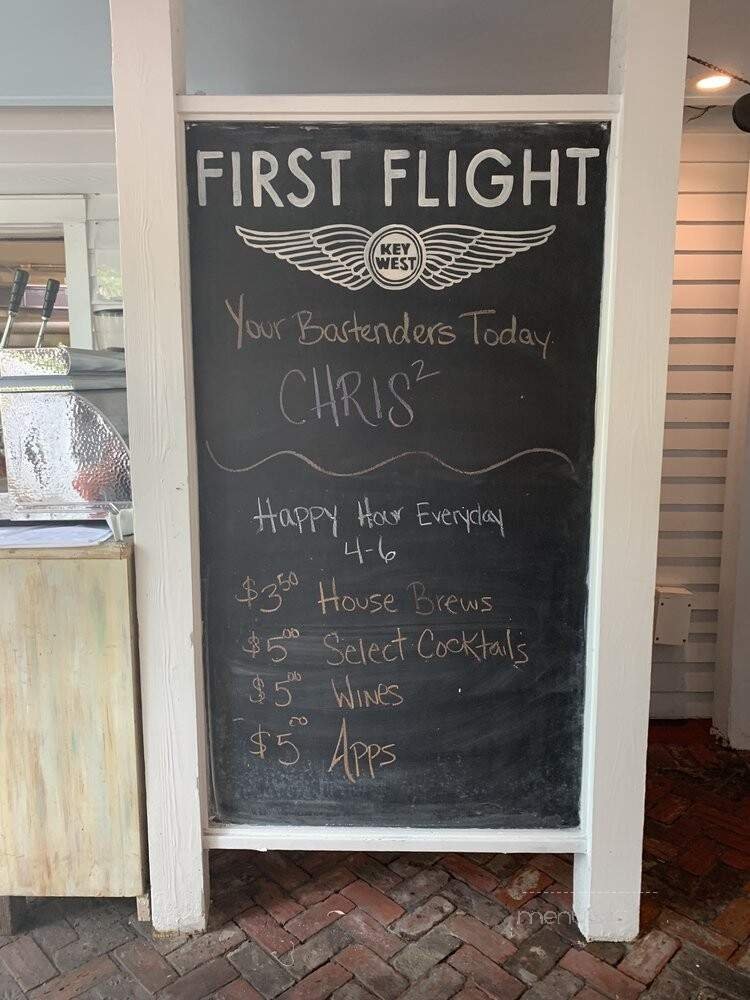 FIRST FLIGHT
KEY
WEST
Your Bartenders Today
CHRIS²
Happy Hour Everyday
4-6
$3⁵⁰ House Brews
$5⁰⁰ Select Cocktails
$5⁰⁰ Wines
$5⁰⁰ Apps